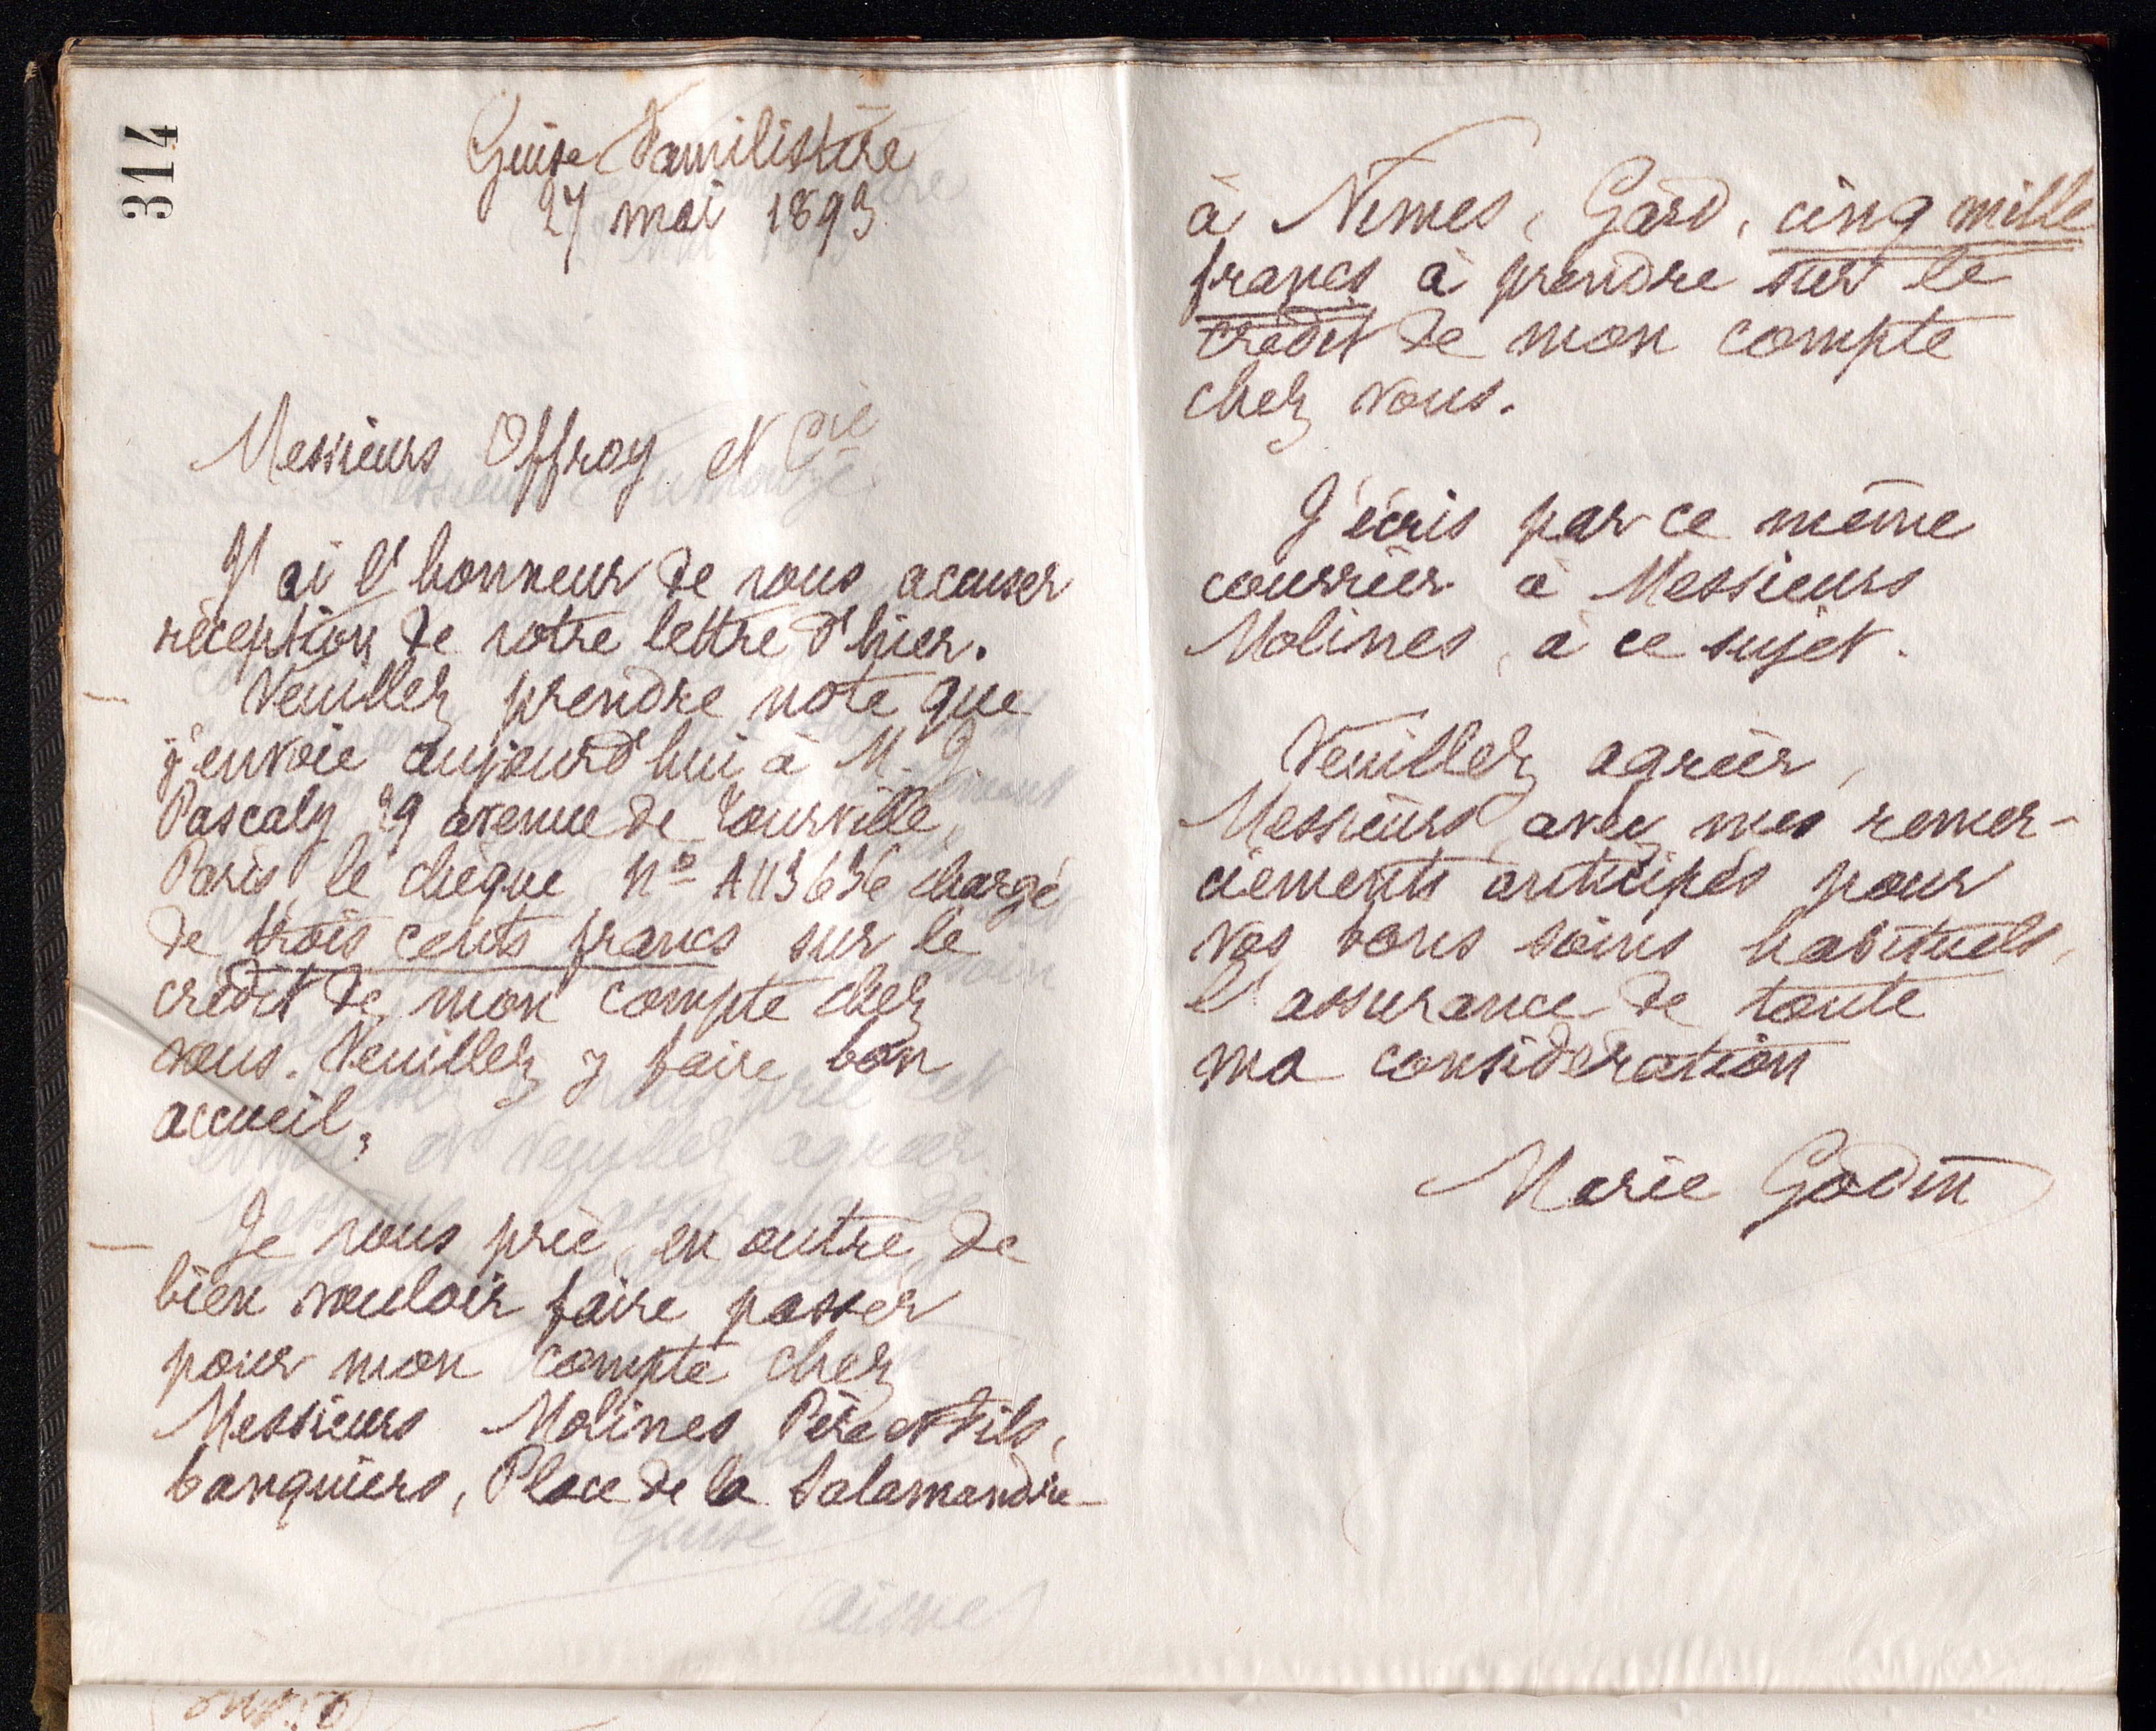 314
Guise Familistère
27 mai 1893
Messieurs Offroy et Cie
J'ai l'honneur de vous accuser
réception de votre lettre d'hier.
Veuillez prendre note que
j'envoie aujourd'hui à M. J.
Pascaly 29 avenue de Tourville,
Paris, le chèque No A113636 chargé
de trois cents francs sur le
crédit de mon compte chez
vous. Veuillez y faire bon
accueil.
Je vous prie, en outre, de
bien vouloir faire passer
pour mon compte chez
Messieurs Molines Père et Fils,
banquiers, Place de la Salamandre
à Nîmes, Gard, cinq mille
francs à prendre sur le
crédit de mon compte
chez vous.
J'écris par ce même
courrier à Messieurs
Molines, à ce sujet.
Veuillez agréer,
Messieurs, avec mes remer-
ciements anticipés pour
vos bons soins habituels,
l'assurance de toute
ma considération
Marie Godin